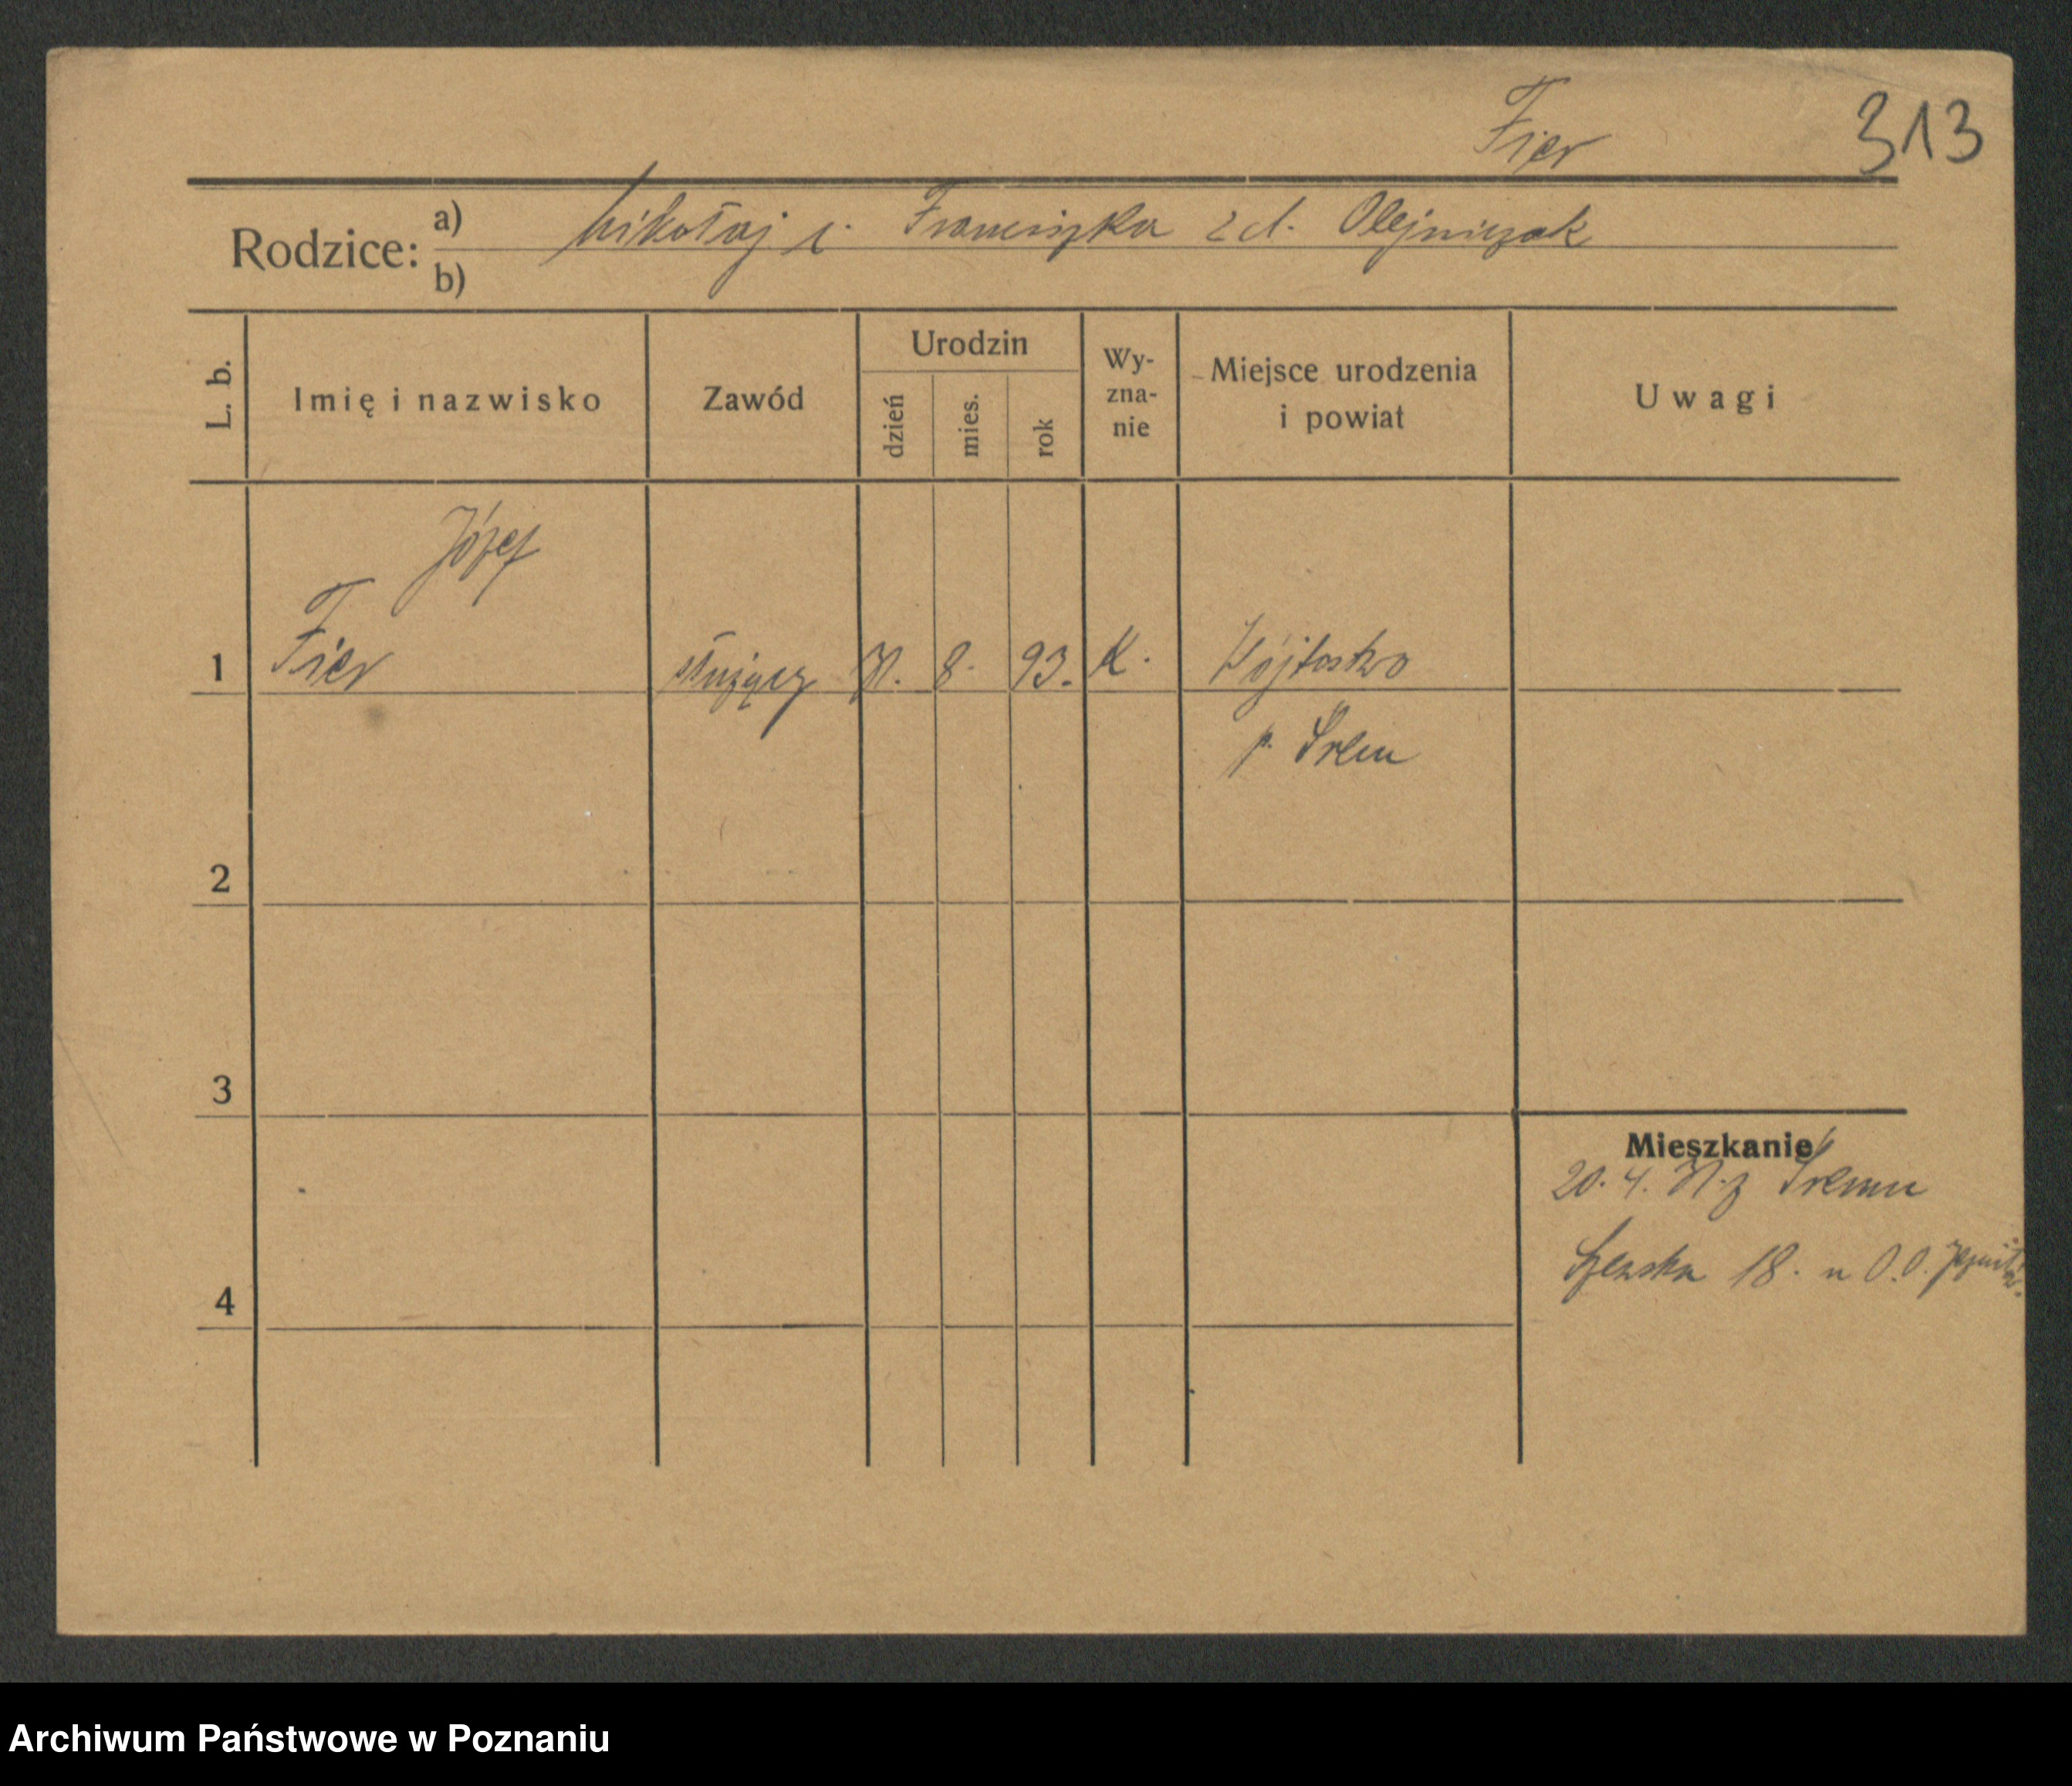 Fier 313
Rodzice: a) Mikołaj i. Franciszka z d. Olejniczak
b)
L. b. Imię i nazwisko Zawód Urodzin dzień mies. rok Wy-zna-nie Miejsce urodzenia i powiat Uwagi
Józef
1 Fier służący 31. 8. 93. K. Wójtostwo
p. Śrem
2
3
Mieszkanie
20. 4. 31. z Śremu
4 Szewska 18. u O.O. Jezuitów.
Archiwum Państwowe w Poznaniu